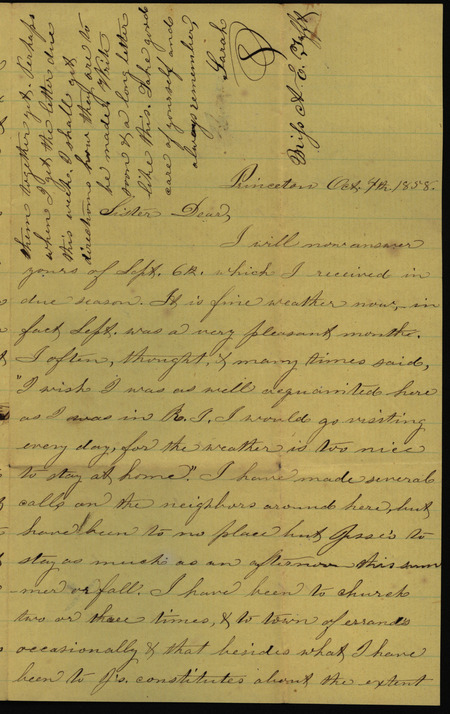 Princeton Oct. 9th. 1858.
Sister Dear,
I will now answer
yours of Sept. 6th. which I received in
due season. It is fine weather now, in
fact Sept. was a very pleasant month.
I often, thought, & many times said,
"I wish I was as well acquainted here
as I was in R. I. I would go visiting
every day, for the weather is too nice
to stay at home". I have made several
calls on the neighbors around here, but
have been to no place but Jesse's to
stay as much as an afternoon this sum
mer or fall. I have been to church
two or three times, & to town of errands
occasionally & that besides what I have
been to J's. constitutes about the extent
them together yet. Perhaps
when I get the letter due
this week. I shall get
directions how they are to
be made. Write
soon & a long letter
like this. Take good
care of yourself and
always remember,
Sarah
Miss A. E. Tefft